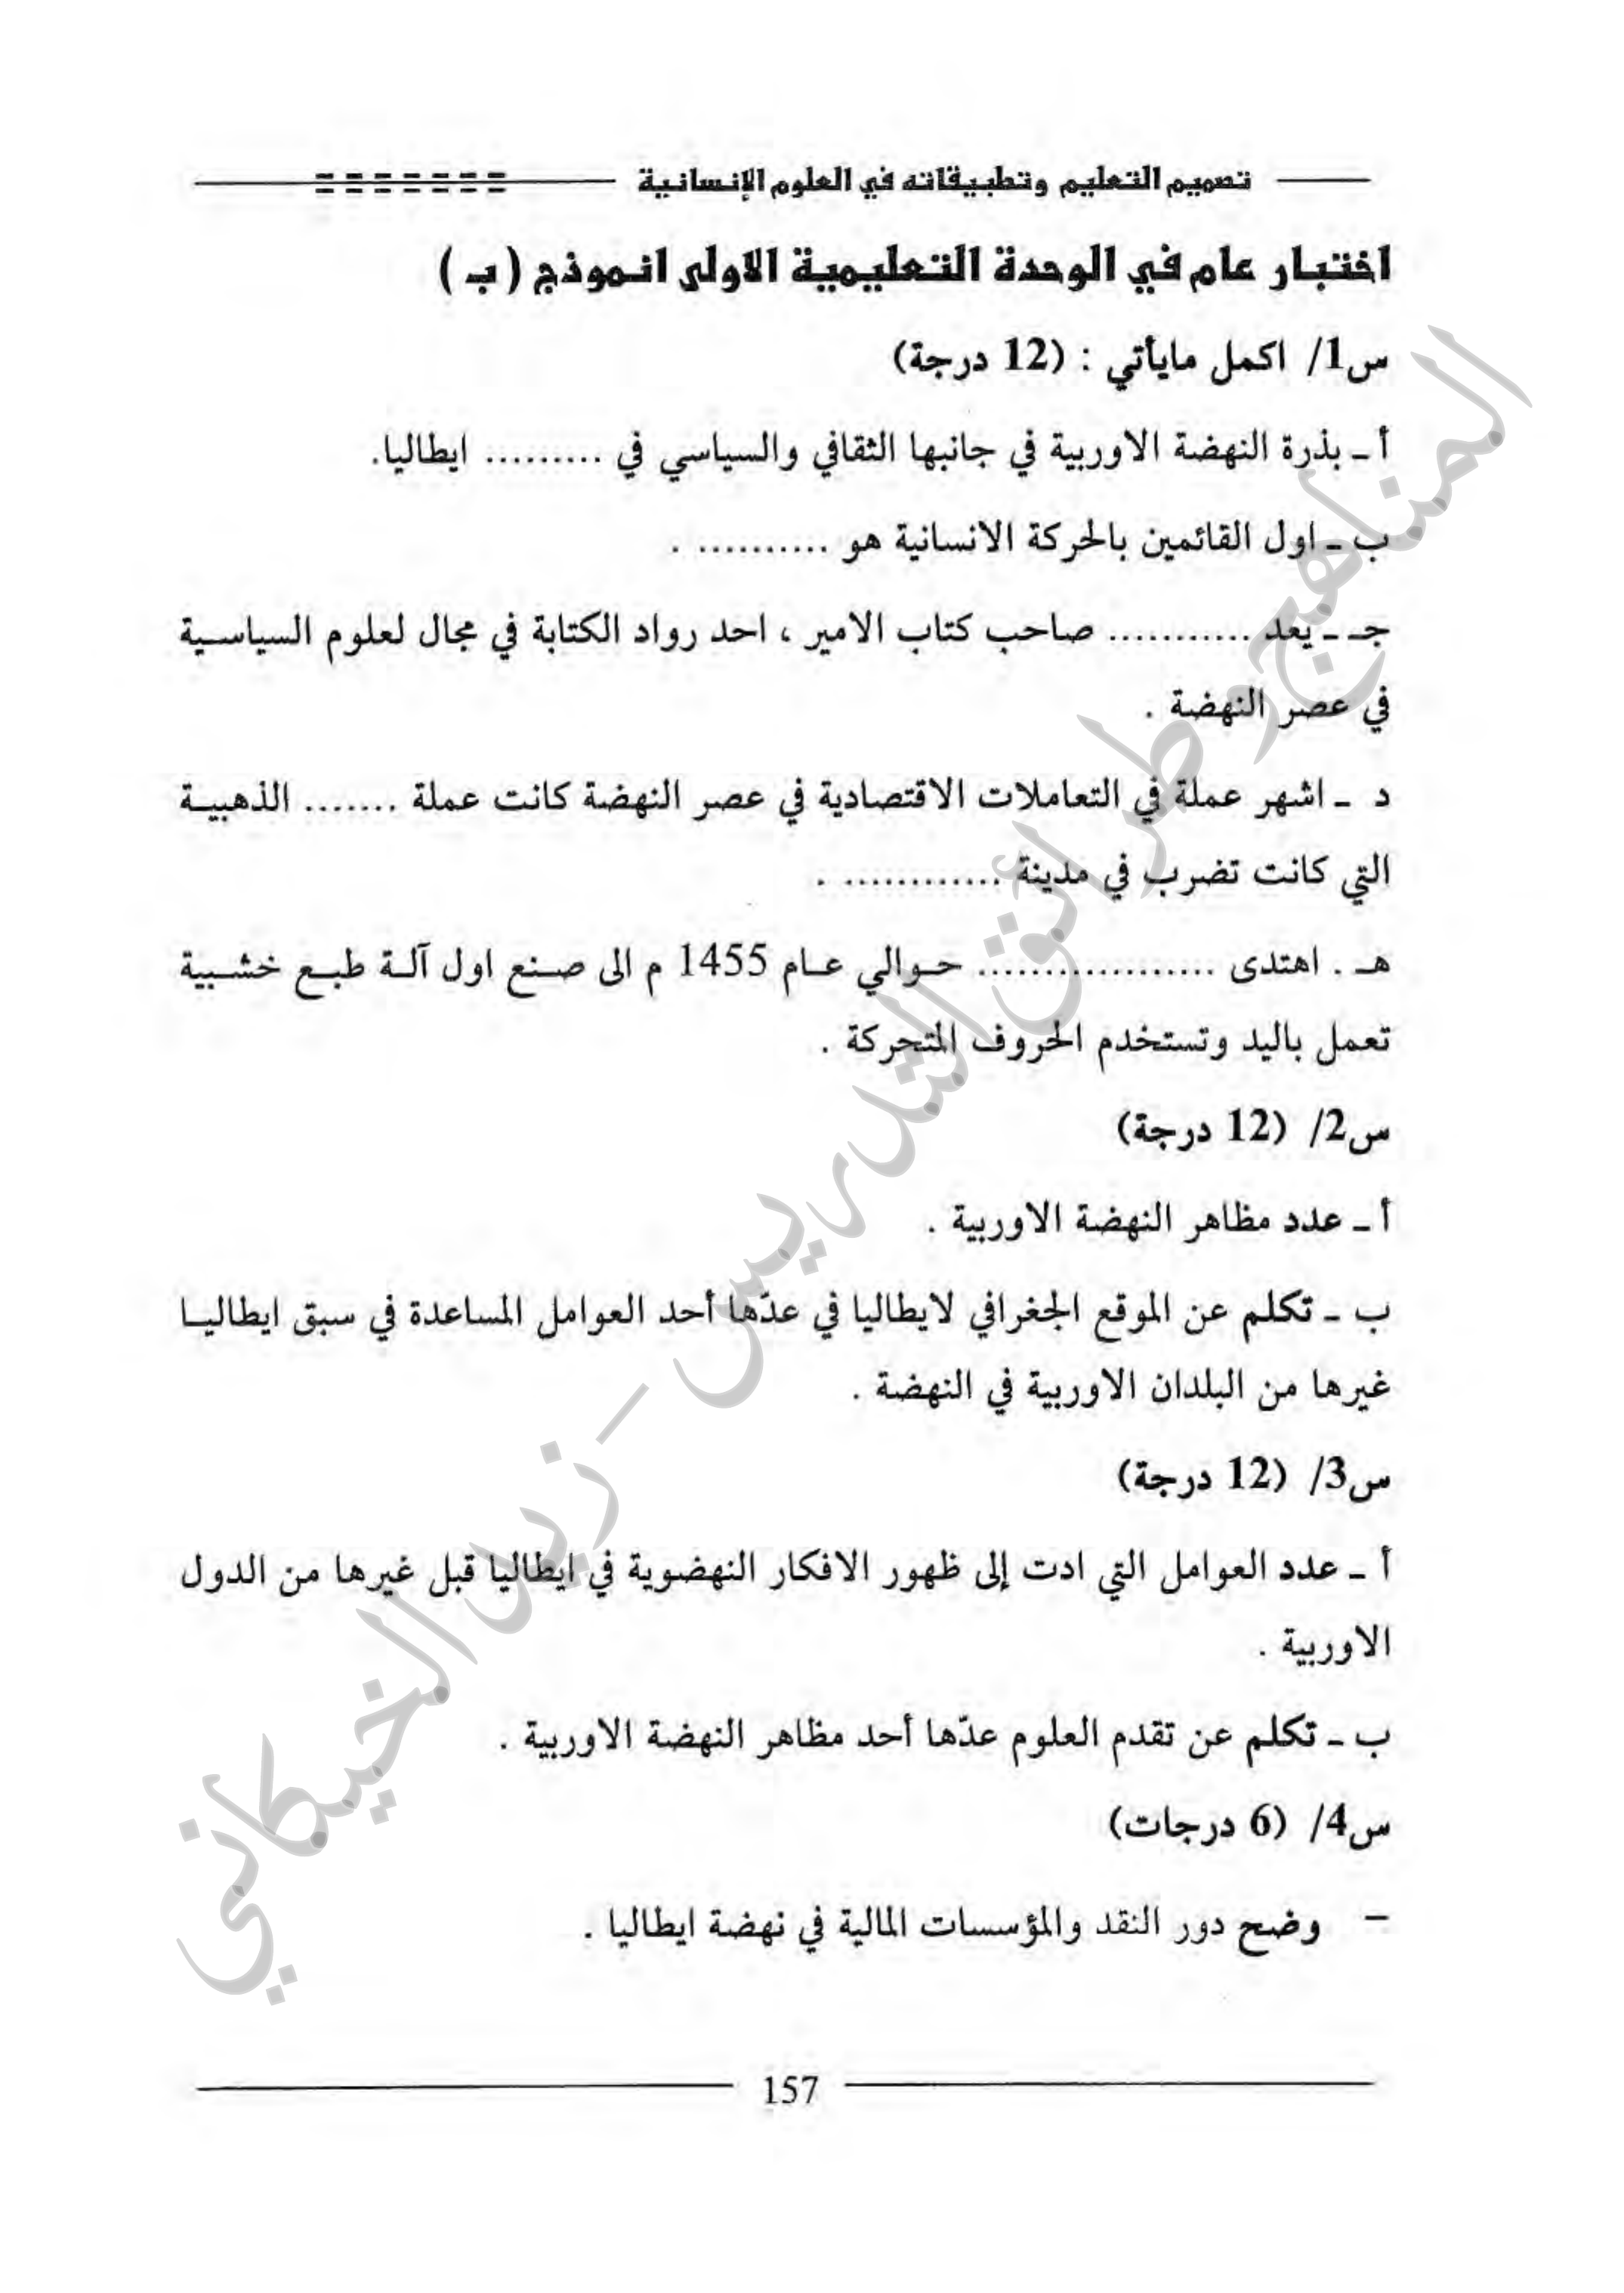 تصميم التعليم وتطبيقاته في العلوم الإنسانية
اختبار عام في الوحدة التعليمية الاولى انموذج ( ب )
س1/ اكمل مايأتي : (12 درجة)
أ ـ بذرة النهضة الاوربية في جانبها الثقافي والسياسي في ......... ايطاليا.
ب ـ اول القائمين بالحركة الانسانية هو .......... .
جـ ـ يعد ........... صاحب كتاب الامير ، احد رواد الكتابة في مجال لعلوم السياسية
في عصر النهضة .
د ـ اشهر عملة في التعاملات الاقتصادية في عصر النهضة كانت عملة ....... الذهبية
التي كانت تضرب في مدينة ............ .
هـ . اهتدى .................. حوالي عام 1455 م الى صنع اول آلة طبع خشبية
تعمل باليد وتستخدم الحروف المتحركة .
س2/ (12 درجة)
أ ـ عدد مظاهر النهضة الاوربية .
ب ـ تكلم عن الموقع الجغرافي لايطاليا في عدّها أحد العوامل المساعدة في سبق ايطاليا
غيرها من البلدان الاوربية في النهضة .
س3/ (12 درجة)
أ ـ عدد العوامل التي ادت إلى ظهور الافكار النهضوية في ايطاليا قبل غيرها من الدول
الاوربية .
ب ـ تكلم عن تقدم العلوم عدّها أحد مظاهر النهضة الاوربية .
س4/ (6 درجات)
– وضح دور النقد والمؤسسات المالية في نهضة ايطاليا .
157
المناهج وطرائق التدريس - زيد الخيكاني